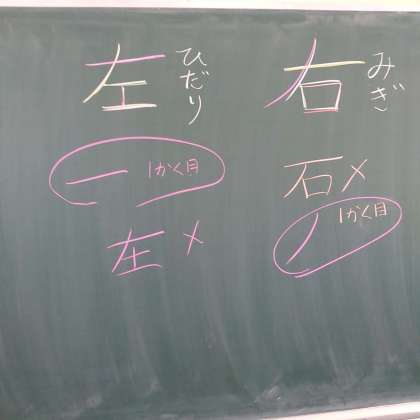 右 みぎ
石 ×
1かく目
左 ひだり
一 1かく目
左 ×